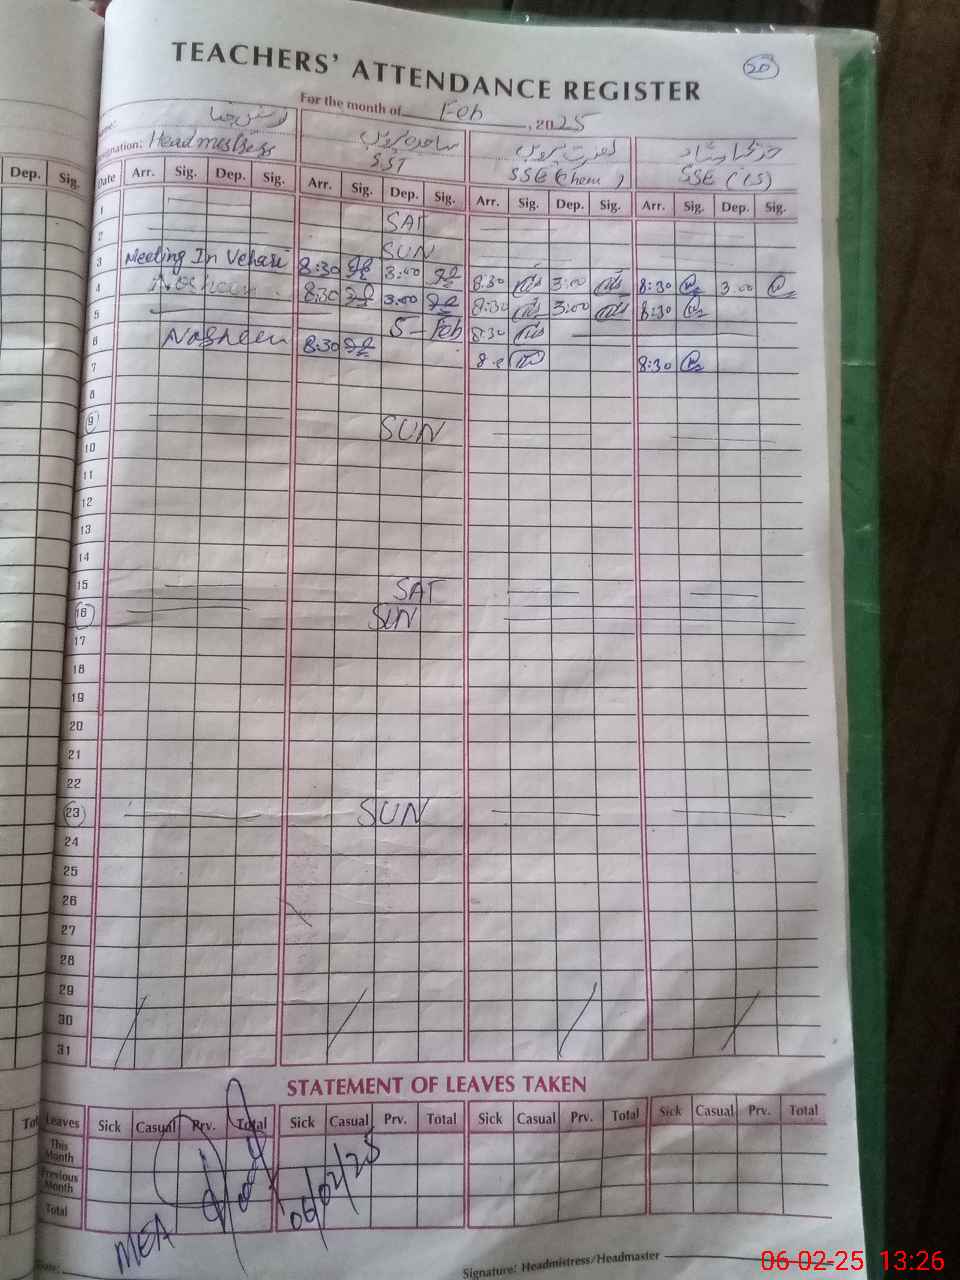 TEACHERS' ATTENDANCE REGISTER
20
For the month of Feb, 2025
Designation: Headmistress
SST
SSE (Chem)
SSE (CS)
Dep. Sig. Date Arr. Sig. Dep. Sig. Arr. Sig. Dep. Sig. Arr. Sig. Dep. Sig. Arr. Sig. Dep. Sig.
1 SAT
2 SUN
3 Meeting In Vehari 8:30 3:00 8:30 3:00 8:30 3:00
4 Nosheen 8:30 3:00 8:30 3:00 8:30
5 5 - Feb 8:30
6 Nosheen 8:30 8:30
7
8
9 SUN
10
11
12
13
14
15 SAT
16 SUN
17
18
19
20
21
22
23 SUN
24
25
26
27
28
29
30
31
STATEMENT OF LEAVES TAKEN
Leaves Sick Casual Prv. Total Sick Casual Prv. Total Sick Casual Prv. Total Sick Casual Prv. Total
This Month
Previous Month
Total
MEA 06/02/25
Date:
Signature: Headmistress/Headmaster
06-02-25 13:26